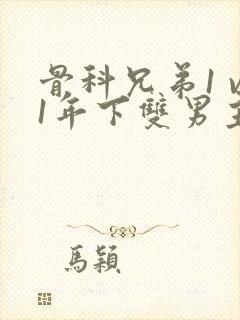 骨科兄弟1v
1年下雙男主
馬穎